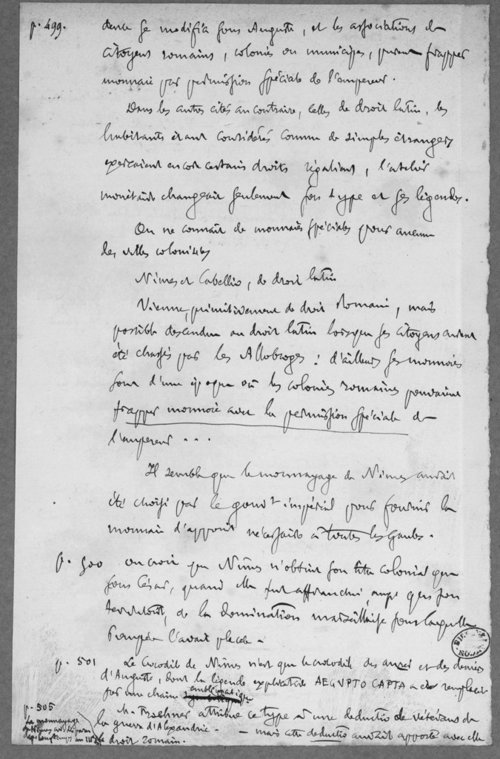 p. 499. dence se modifia sous Auguste, et les associations de
citoyens romains, colonies ou municipes, purent frapper
monnaie par permission spéciale de l'empereur.
Dans les autres cités au contraire, celles de droit latin, les
habitants étant considérés comme de simples étrangers
exerçaient encore certains droits régaliens, l'atelier
monétaire changeait seulement son type et ses légendes.
On ne connait de monnaies spéciales pour aucune
des villes coloniales
Nîmes et Cabellio, de droit latin
Vienne, primitivement de droit Romain, mais
possible descendue au droit latin lorsque ses citoyens eurent
été chassés par les Allobroges : d'ailleurs ses monnaies
sont d'une époque où les colonies romaines pouvaient
frapper monnaie avec la permission spéciale de
l'empereur ...
Il semble que le monnayage de Nîmes aurait
été choisi par le gouvt impérial pour fournir la
monnaie d'appoint nécessaire à toutes les Gaules.
p. 500 on croit que Nîmes n'obtint son titre colonial que
sous César, quand elle fut affranchie, ainsi que son
territoire, de la domination marseillaise sous laquelle
Pompée l'avait placée.
p. 501 Le Crocodile de Nîmes n'est que le crocodile des et des deniers
d'Auguste, dont la légende explicative AEGVPTO CAPTA a été remplacée
par une chaine
p. 505 M. attribue ce type à une deductio de vétérans de
la guerre d'Alexandrie. — mais cette deductio aurait apporté avec elle
le droit romain.
le monnayage